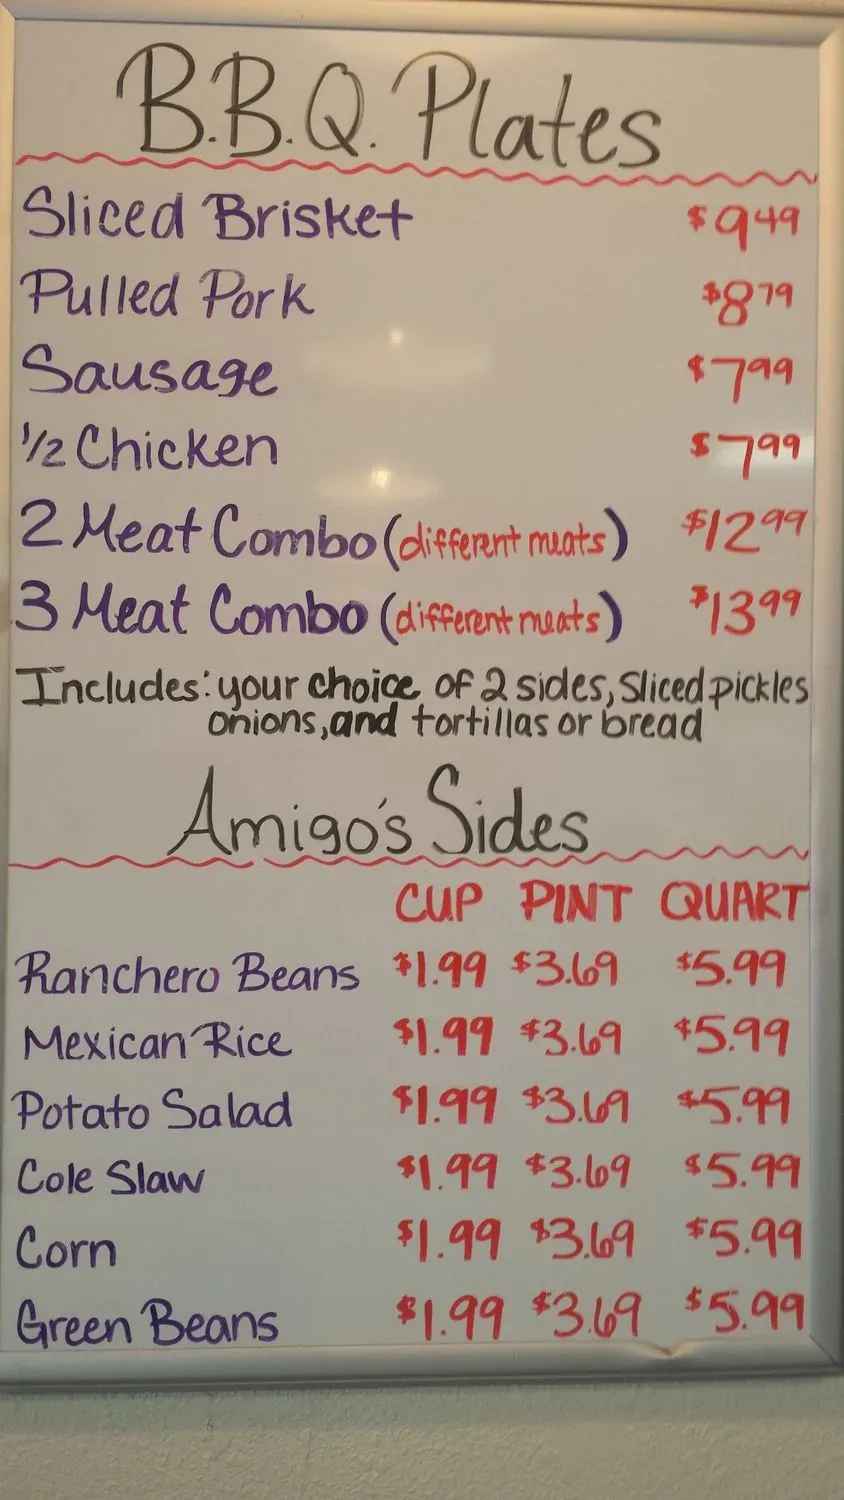 B.B.Q. Plates
Sliced Brisket $9.49
Pulled Pork $8.79
Sausage $7.99
1/2 Chicken $7.99
2 Meat Combo (different meats) $12.99
3 Meat Combo (different meats) $13.99
Includes: your choice of 2 sides, Sliced pickles
onions, and tortillas or bread
Amigo's Sides
CUP PINT QUART
Ranchero Beans $1.99 $3.69 $5.99
Mexican Rice $1.99 $3.69 $5.99
Potato Salad $1.99 $3.69 $5.99
Cole Slaw $1.99 $3.69 $5.99
Corn $1.99 $3.69 $5.99
Green Beans $1.99 $3.69 $5.99